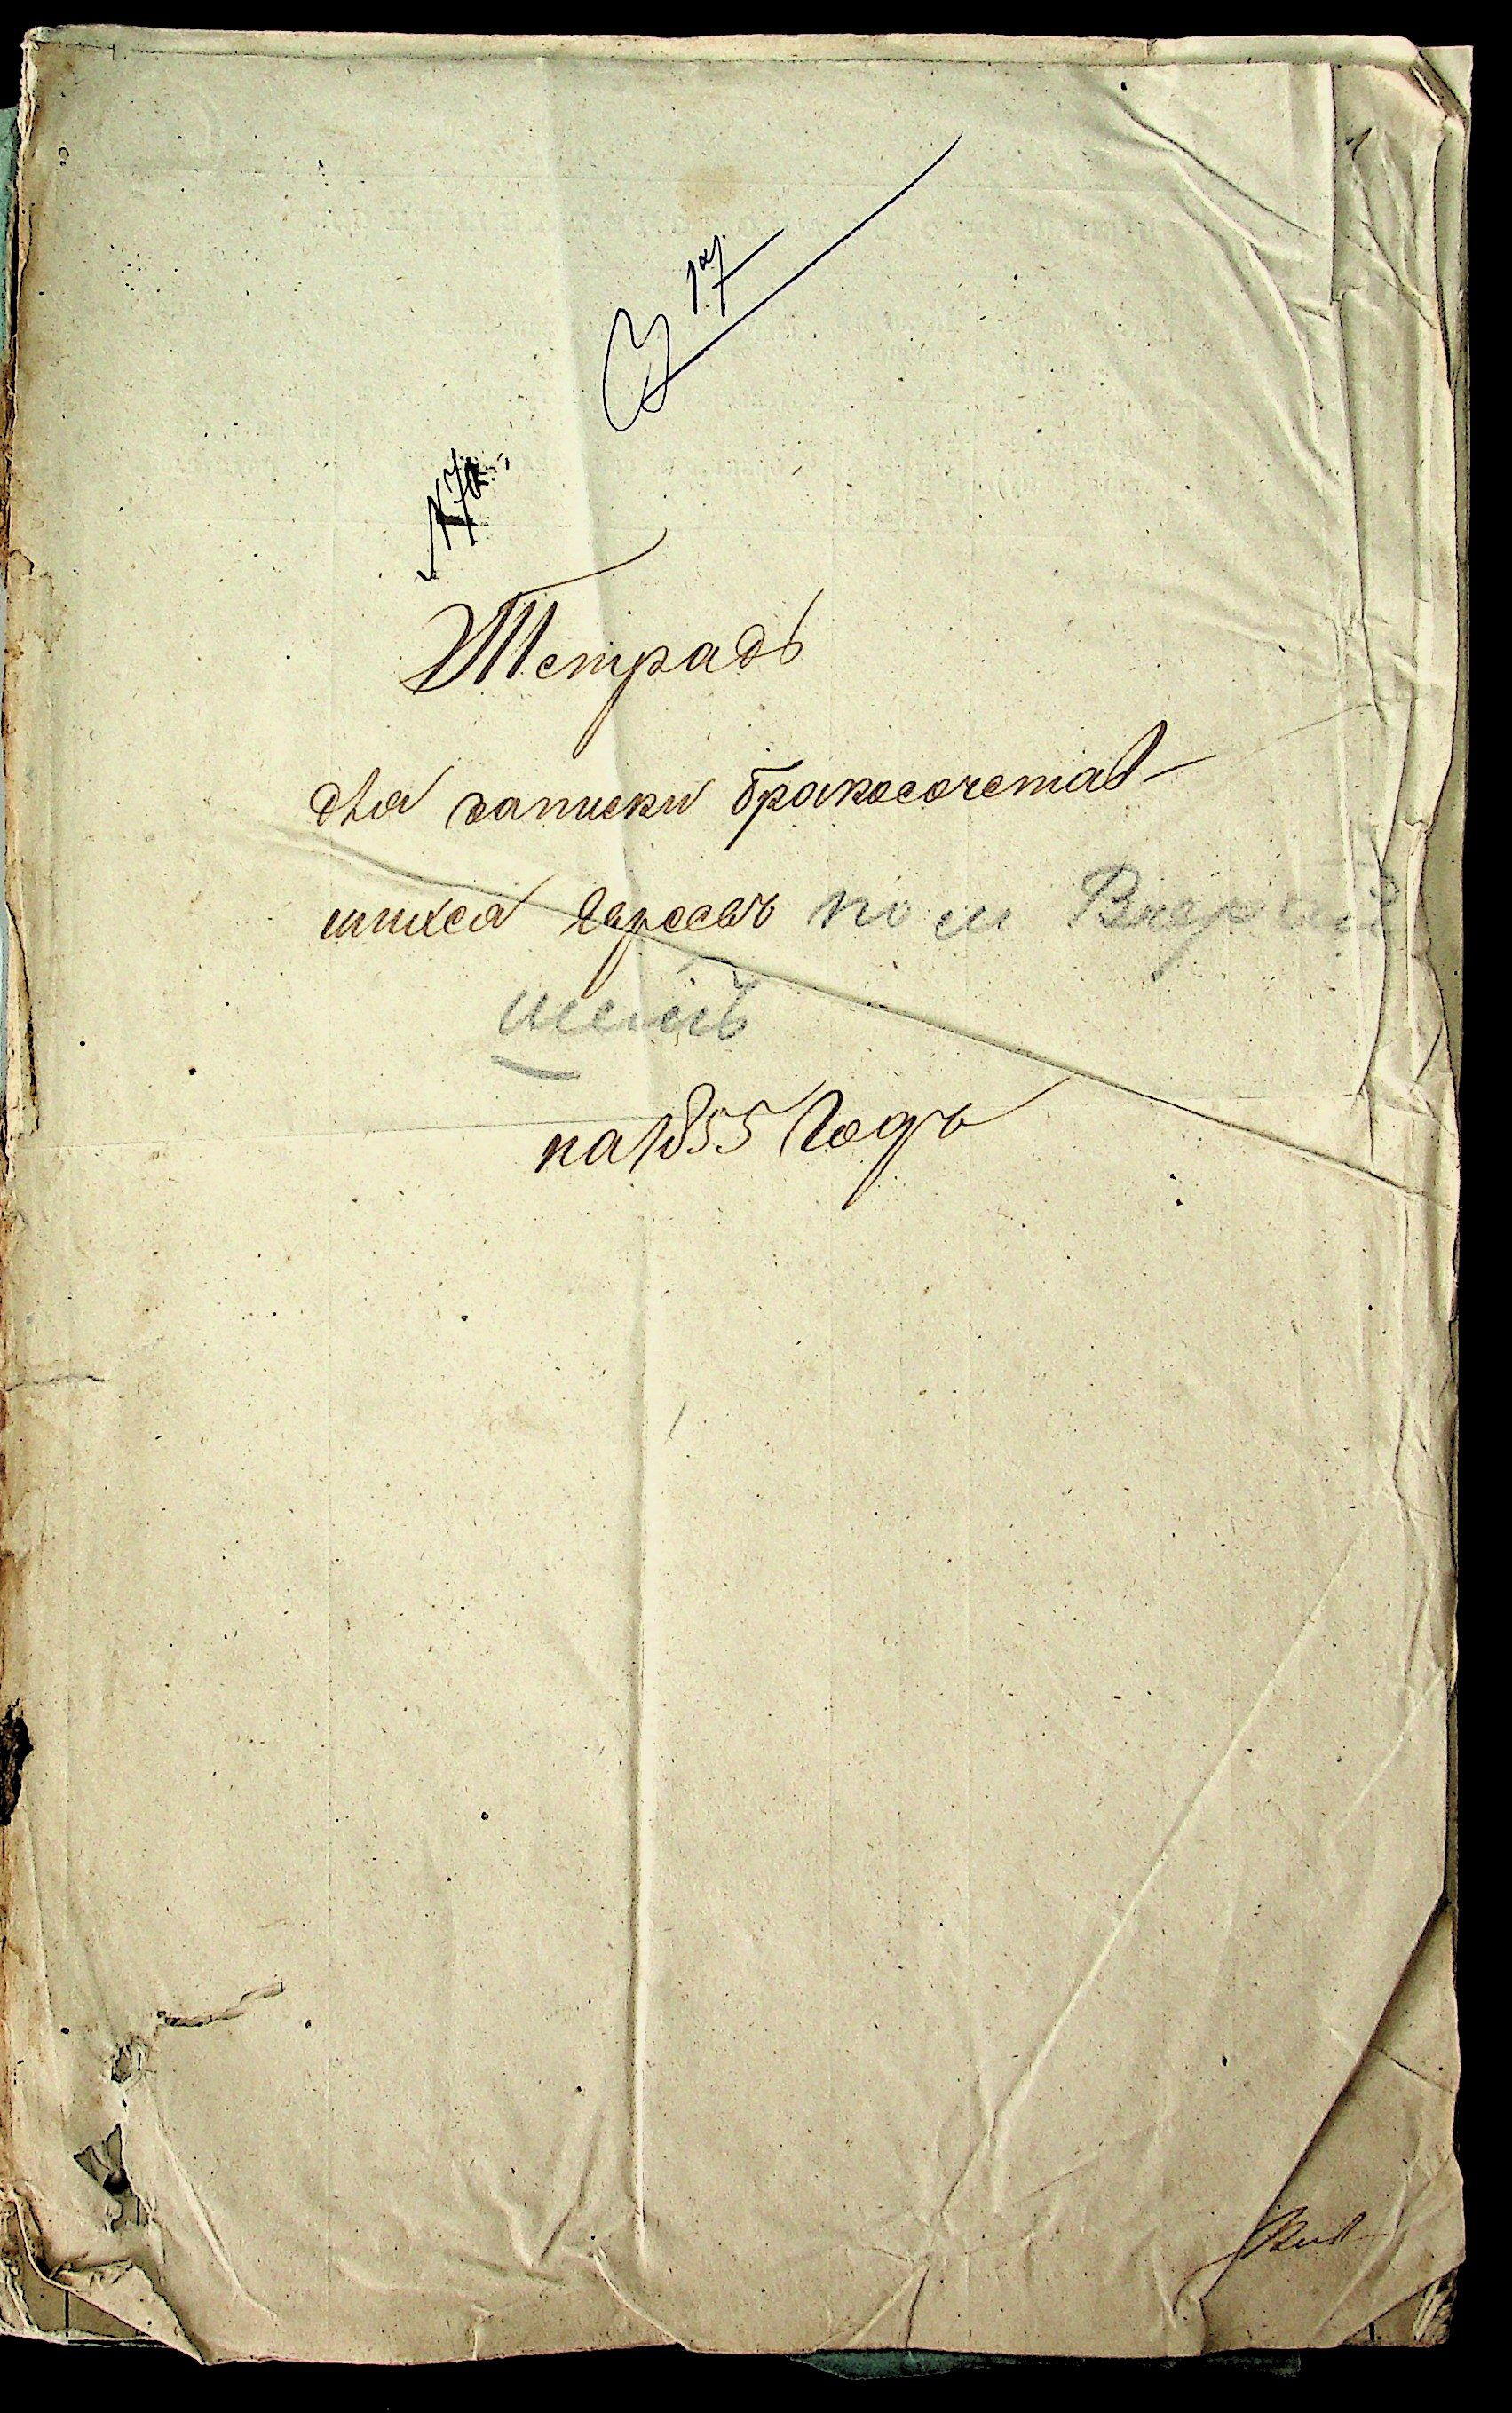 17
Тетрадь
для записки бракосочетав-
шихся Евреевъ по м Вчерай
шемъ
на 1855 Годъ